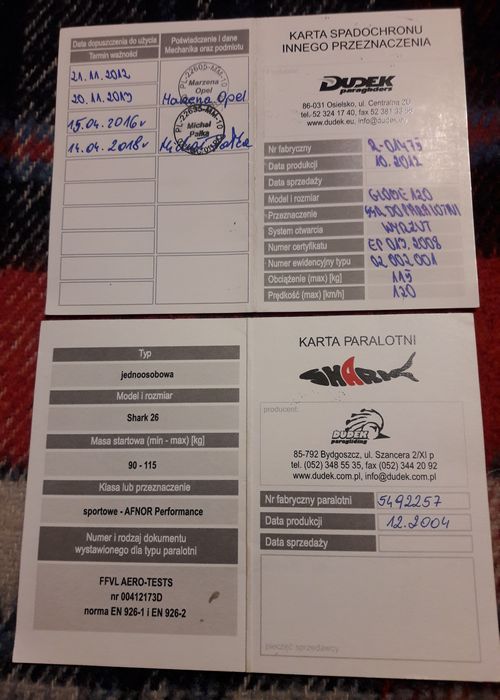 Data dopuszczenia do użycia
Termin ważności
Poświadczenie i dane
Mechanika oraz podmiotu
21.11.2012
20.11.2013
15.04.2016r
14.04.2018r
PL-22605-MM-10
Marzena
Opel
Marzena Opel
Michał
Pałka
KARTA SPADOCHRONU
INNEGO PRZEZNACZENIA
DUDEK
paragliders
86-031 Osielsko, ul. Centralna 2D
tel. 52 324 17 40, fax 52 381 33
www.dudek.eu, info@dudek.eu
Nr fabryczny R-01475
Data produkcji 10.2012
Data sprzedaży
Model i rozmiar GLOBE 120
Przeznaczenie
System otwarcia WYRZUT
Numer certyfikatu EP 019.2008
Numer ewidencyjny typu 02 002 001
Obciążenie (max) [kg] 119
Prędkość (max) [km/h] 120
Typ
jednoosobowa
Model i rozmiar
Shark 26
Masa startowa (min - max) [kg]
90 - 115
Klasa lub przeznaczenie
sportowe - AFNOR Performance
Numer i rodzaj dokumentu
wystawionego dla typu paralotni
FFVL AERO-TESTS
nr 00412173D
norma EN 926-1 i EN 926-2
KARTA PARALOTNI
SHARK
producent:
DUDEK
paragliding
85-792 Bydgoszcz, ul. Szancera 2/XI p
tel. (052) 348 55 35, fax (052) 344 20 92
www.dudek.com.pl, info@dudek.com.pl
Nr fabryczny paralotni 5492257
Data produkcji 12.2004
Data sprzedaży
pieczęć sprzedawcy